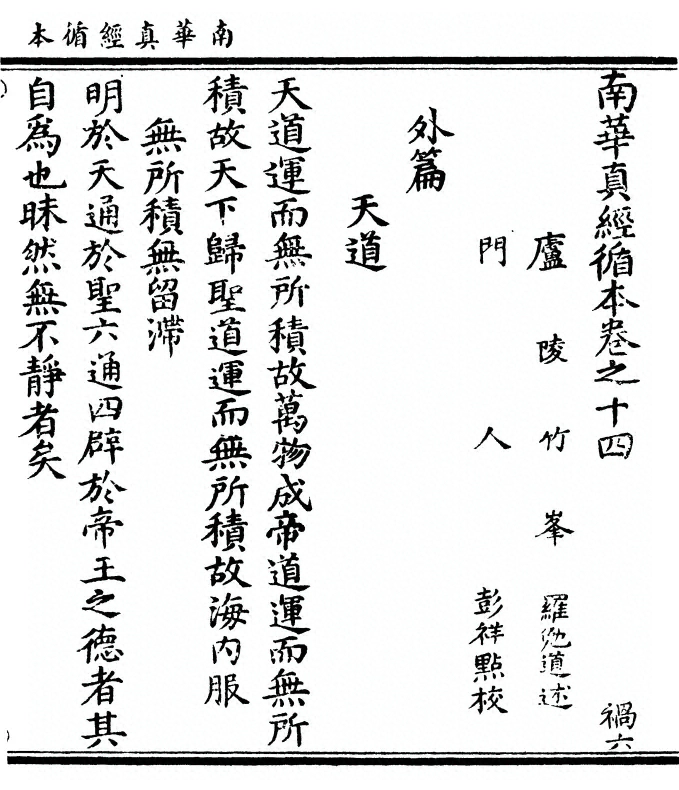 南華真經循本
南華真經循本卷之十四 禍六
廬陵竹峯 羅勉道述
門人 彭祥點校
外篇
天道
天道運而無所積故萬物成帝道運而無所
積故天下歸聖道運而無所積故海內服
無所積無留滯
明於天通於聖六通四辟於帝王之德者其
自為也昧然無不靜者矣